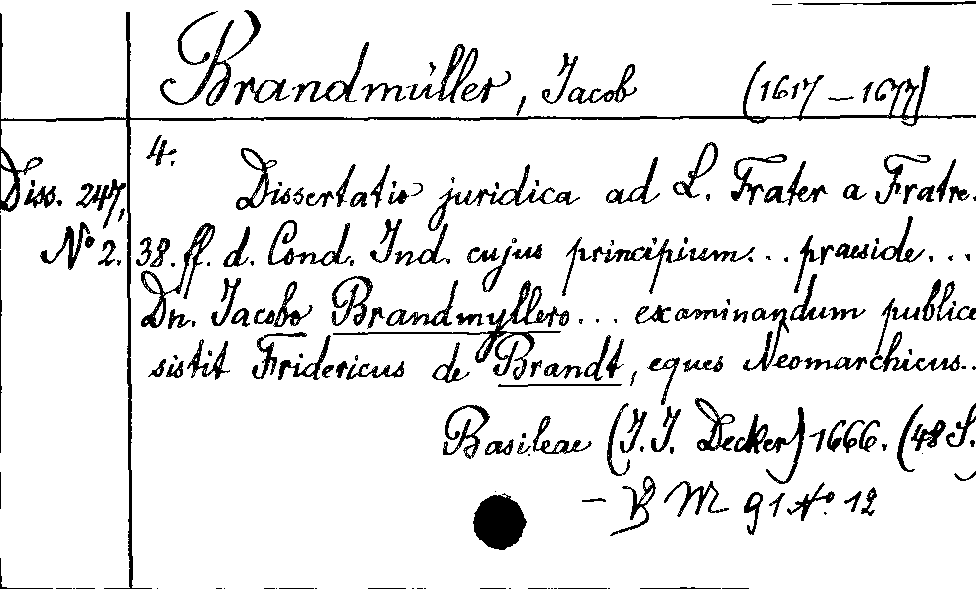 Brandmüller, Jacob (1617-1677)
4.
Diss. 247, Dissertatio juridica ad L. Frater a Fratre.
No 2. 38. ff. d. Cond. Ind. cujus principium... praeside...
Dn. Jacobo Brandmyllero... examinandum publice
sistit Fridericus de Brandt, eques Neomarchicus...
Basileae (J. J. Decker) 1666. (48 S.
- B M 91 No. 12